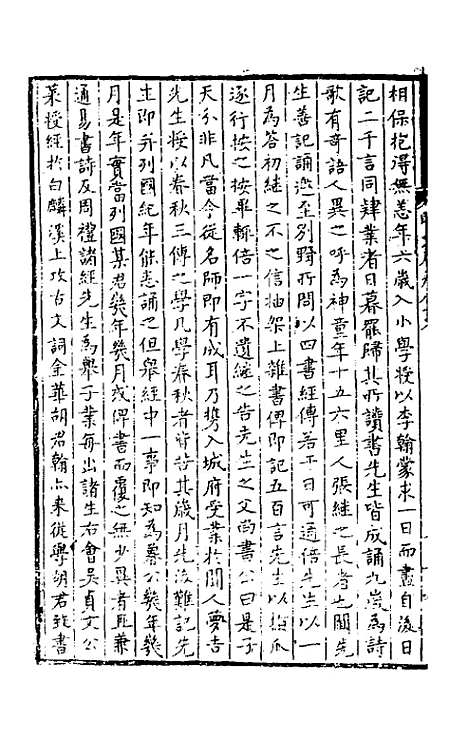 相保抱得無恙年六歲入小學授以李翰蒙求一日而盡自後日
記二千言同肄業者日暮罷歸其所讀書先生皆成誦九歲為詩
歌有奇語人異之呼為神童年十五六里人張繼之長者也聞先
生善記誦邀至別館所問以四書經傳若干日可通倍先生以一
月為答初繼之不之信抽架上雜書俾即記五百言先生以指爪
逐行按之畢輒倍一字不遺繼之告先生之父尚書公曰是子
天分非凡當令從名師即有成耳乃携入城府受業於聞人夢吉
先生授以春秋三傳之學凡學春秋者皆苦其歲月先後難記先
生即并列國紀年傋悉誦之但舉經中一事即知為魯公幾年幾
月是年實當列國某君幾年幾月或俾書而覆之無少異者且兼
通易書詩及周禮諸經先生為舉子業每出諸生右會吳貞文公
萊授經於白麟溪上攻古文詞金華胡君翰亦來從學胡君致書